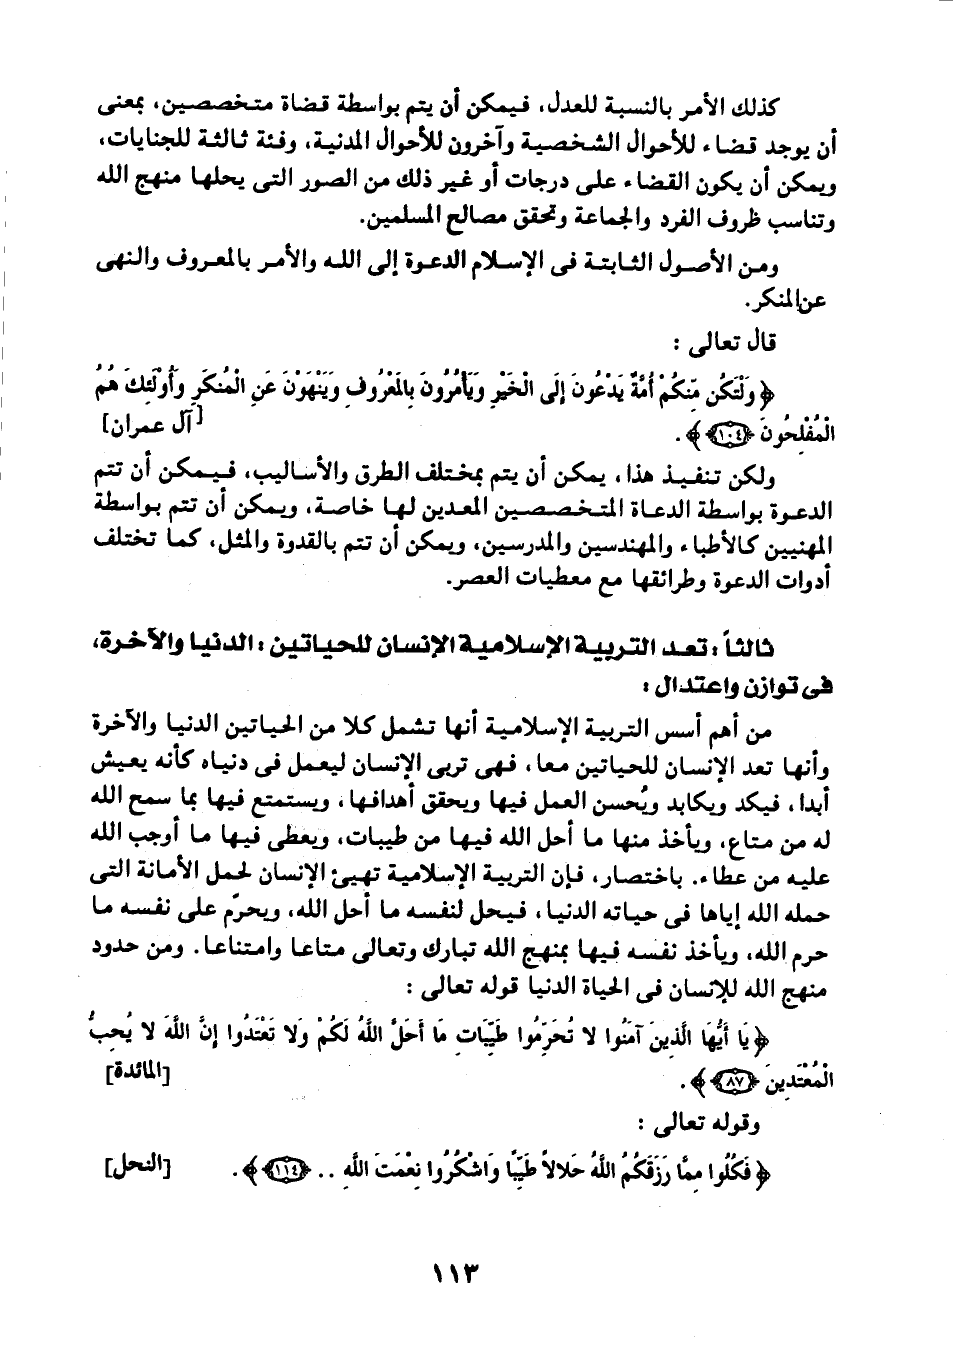 كذلك الأمر بالنسبة للعدل، فيمكن أن يتم بواسطة قضاة متخصصين، بمعنى
أن يوجد قضاء للأحوال الشخصية وآخرون للأحوال المدنية، وفئة ثالثة للجنايات،
ويمكن أن يكون القضاء على درجات أو غير ذلك من الصور التى يحلها منهج الله
وتناسب ظروف الفرد والجماعة وتحقق مصالح المسلمين.
ومن الأصول الثابتة فى الإسلام الدعوة إلى الله والأمر بالمعروف والنهى
عن المنكر.
قال تعالى :
﴿ وَلْتَكُن مِّنكُمْ أُمَّةٌ يَدْعُونَ إِلَى الْخَيْرِ وَيَأْمُرُونَ بِالْمَعْرُوفِ وَيَنْهَوْنَ عَنِ الْمُنكَرِ وَأُوْلَئِكَ هُمُ
الْمُفْلِحُونَ ﴿١٠٤﴾ ﴾ . [آل عمران]
ولكن تنفيذ هذا، يمكن أن يتم بمختلف الطرق والأساليب، فيمكن أن تتم
الدعوة بواسطة الدعاة المتخصصين المعدين لها خاصة، ويمكن أن تتم بواسطة
المهنيين كالأطباء والمهندسين والمدرسين، ويمكن أن تتم بالقدوة والمثل، كما تختلف
أدوات الدعوة وطرائقها مع معطيات العصر.
ثالثاً : تعد التربية الإسلامية الإنسان للحياتين : الدنيا والآخرة،
فى توازن واعتدال :
من أهم أسس التربية الإسلامية أنها تشمل كلا من الحياتين الدنيا والآخرة
وأنها تعد الإنسان للحياتين معا، فهى تربى الإنسان ليعمل فى دنياه كأنه يعيش
أبدا، فيكد ويكابد ويُحسن العمل فيها ويحقق أهدافها، ويستمتع فيها بما سمح الله
له من متاع، ويأخذ منها ما أحل الله فيها من طيبات، ويعطى فيها ما أوجب الله
عليه من عطاء. باختصار، فإن التربية الإسلامية تهيئ الإنسان لحمل الأمانة التى
حمله الله إياها فى حياته الدنيا، فيحل لنفسه ما أحل الله، ويحرّم على نفسه ما
حرم الله، ويأخذ نفسه فيها بمنهج الله تبارك وتعالى متاعا وامتناعا. ومن حدود
منهج الله للإنسان فى الحياة الدنيا قوله تعالى :
﴿ يَا أَيُّهَا الَّذِينَ آمَنُوا لا تُحَرِّمُوا طَيِّبَاتِ مَا أَحَلَّ اللَّهُ لَكُمْ وَلا تَعْتَدُوا إِنَّ اللَّهَ لا يُحِبُّ
الْمُعْتَدِينَ ﴿٨٧﴾ ﴾ . [المائدة]
وقوله تعالى :
﴿ فَكُلُوا مِمَّا رَزَقَكُمُ اللَّهُ حَلالاً طَيِّبًا وَاشْكُرُوا نِعْمَتَ اللَّهِ .. ﴿١١٤﴾ ﴾ . [النحل]
١١٣